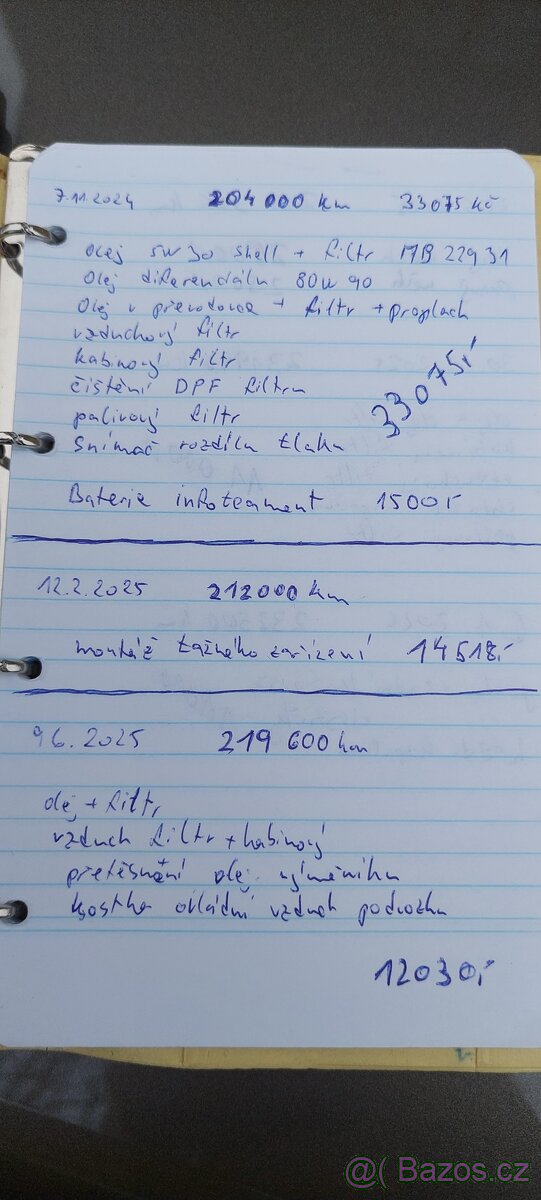 7.11.2024 204 000 km 33075 Kč
olej 5W30 Shell + filtr MB 229 31
Olej diferenciálu 80W90
Olej v převodovce + filtr + proplach
vzduchový filtr
kabinový filtr
čištění DPF filtru
palivový filtr
33075,-
Snímač rozdílu tlaku
Baterie 1500,-
12.2.2025 212000 km
montáž tažného zařízení 14518,-
9 6. 2025 219 600 km
olej + filtr
vzduch filtr + kabinový
přetěsnění olej. výměníku
kostka vzduch podvozku
12030,-
@( Bazos.cz